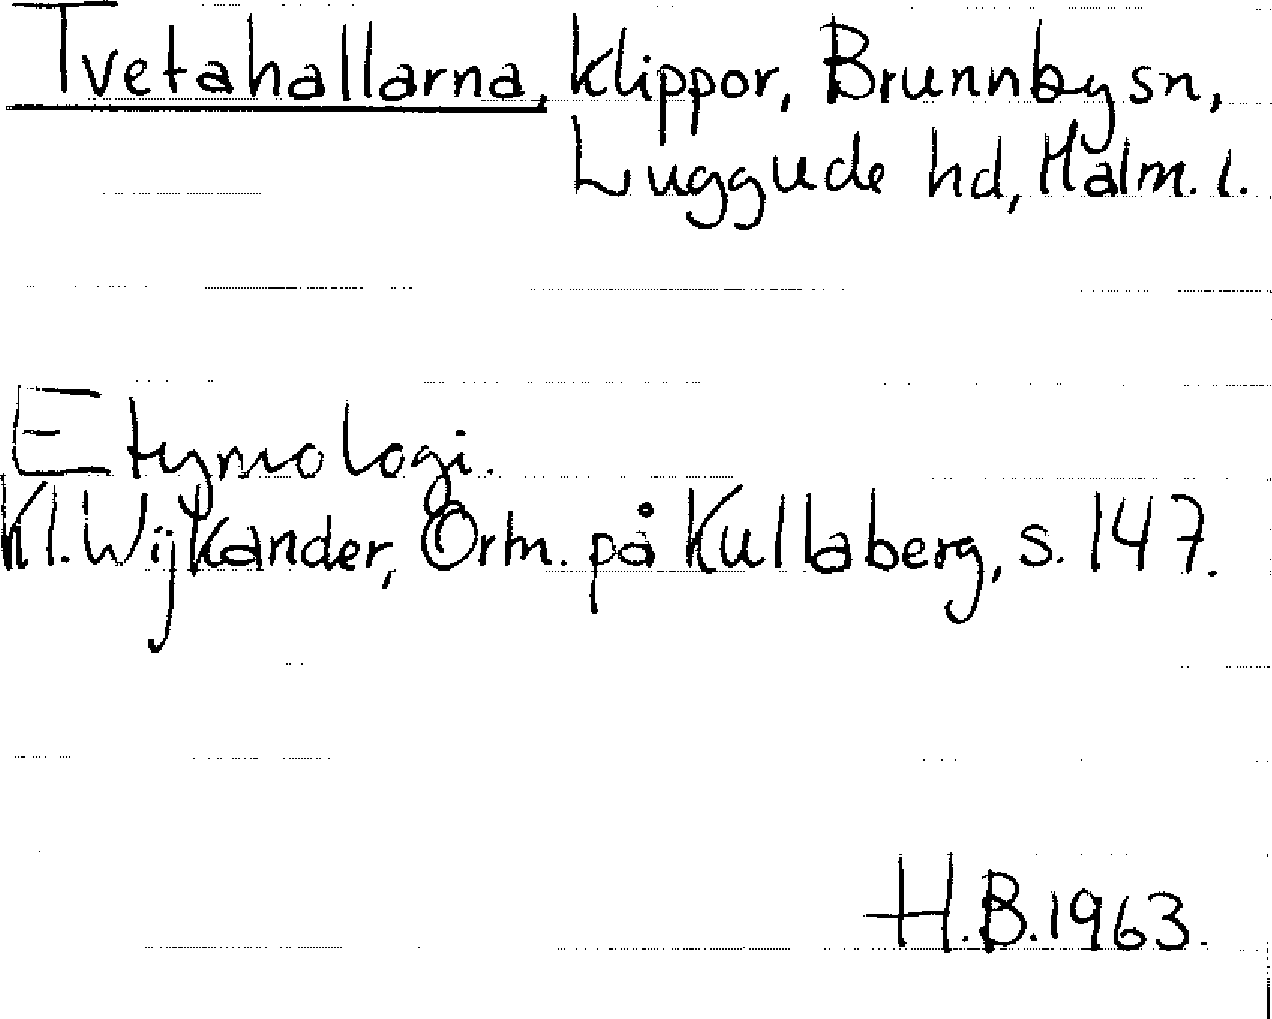 Tvetahallarna, klippor, Brunnby sn,
Luggude hd, Malm. l.
Etymologi.
Kl. Wijkander, Ortn. på Kullaberg, s. 147.
H.B. 1963.